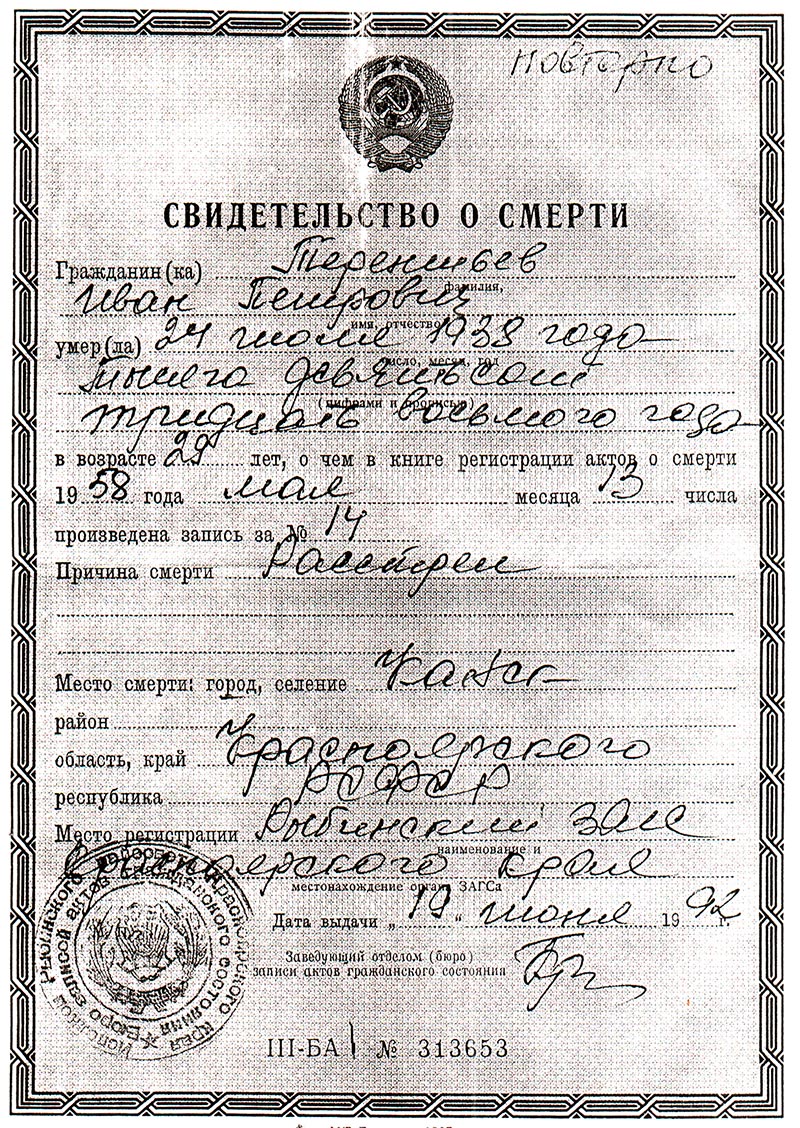 повторно
СВИДЕТЕЛЬСТВО О СМЕРТИ
Гражданин(ка) Терентьев
фамилия,
Иван Петрович
имя, отчество
умер(ла) 24 июля 1938 года
число, месяц, год
тысяча девятьсот
(цифрами и прописью)
тридцать восьмого года
в возрасте 29 лет, о чем в книге регистрации актов о смерти
19 58 года мая месяца 13 числа
произведена запись за № 14
Причина смерти Расстрел
Место смерти: город, селение Канск
район
область, край Красноярского
республика РСФСР
Место регистрации Рыбинский ЗАГС
наименование и
Красноярского края
местонахождение органа ЗАГСа
Дата выдачи „ 19 " июня 19 92 г.
Заведующий отделом (бюро)
записи актов гражданского состояния
III-БА № 313653